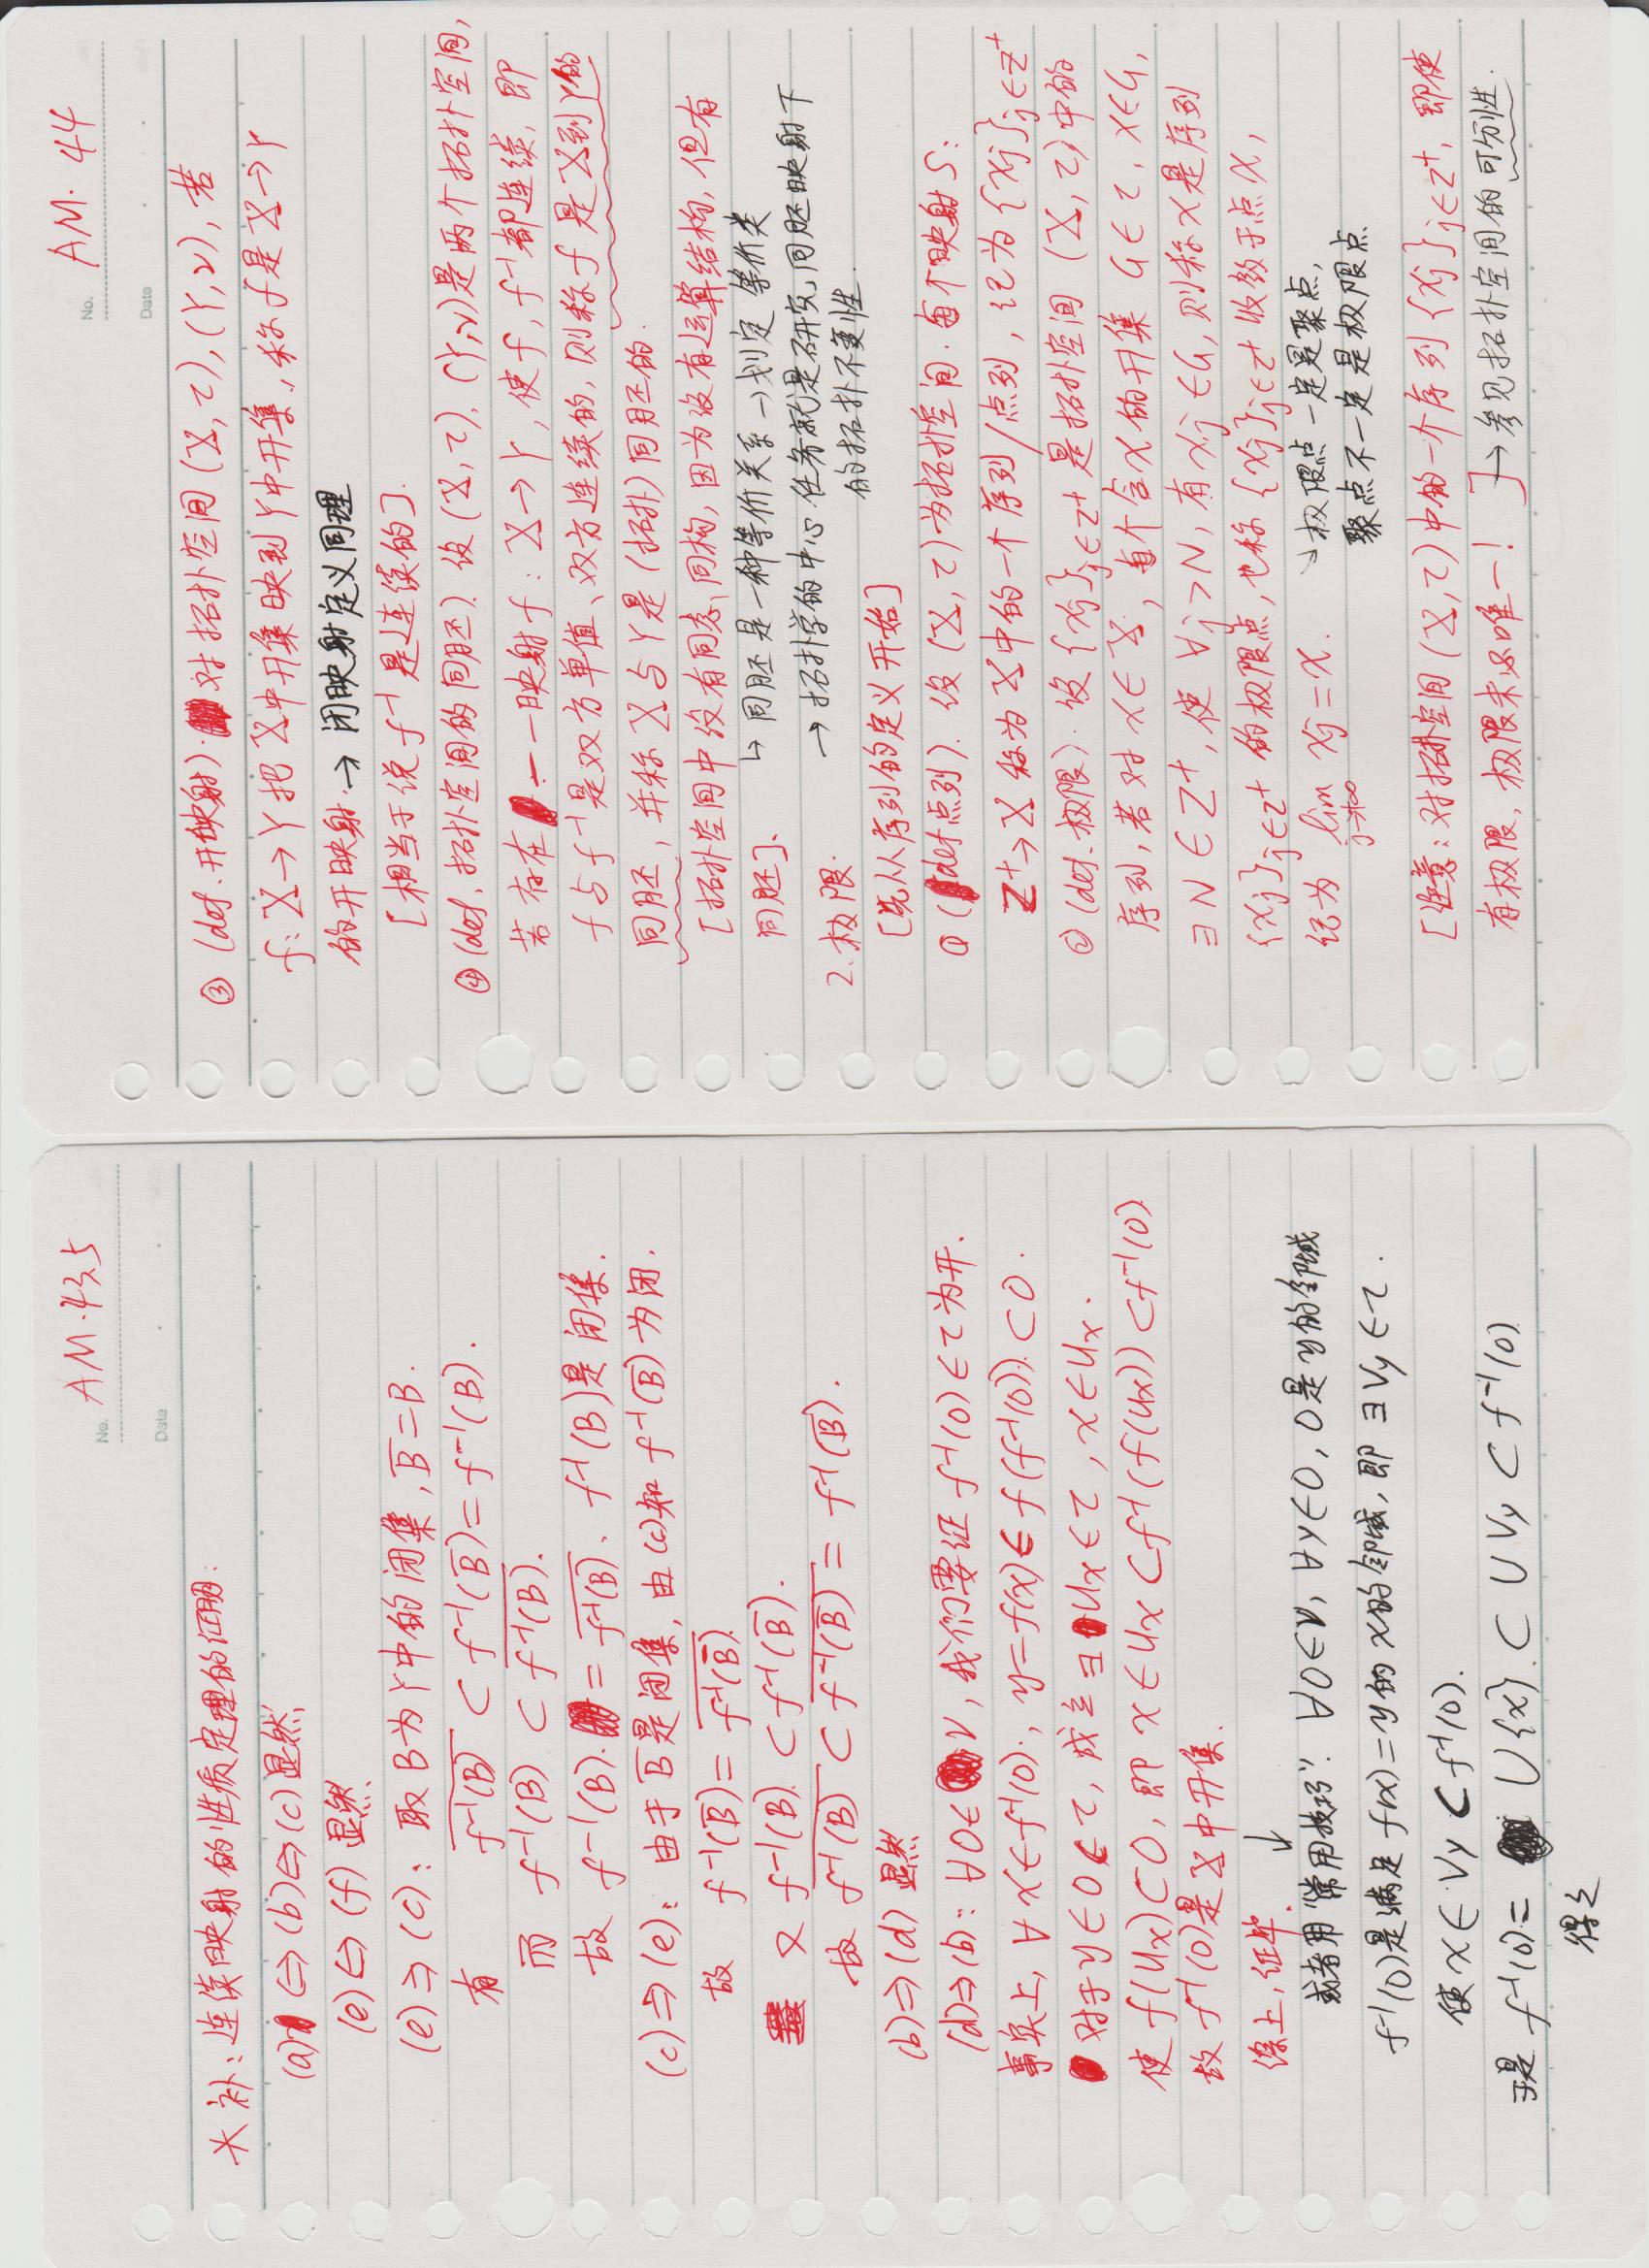 No. AM.43.5
Date
* 补：连续映射的性质定理的证明：
(a) ⇔ (b) ⇔ (c) 显然,
(e) ⇔ (f) 显然
(e) ⇒ (c)： 取 B 为 Y 中的闭集, B̅ = B.
有 \overline{f⁻¹(B)} ⊂ f⁻¹(B̅) = f⁻¹(B).
而 f⁻¹(B) ⊂ \overline{f⁻¹(B)}.
故 f⁻¹(B) = \overline{f⁻¹(B)}、f⁻¹(B)是闭集.
(c) ⇒ (e)： 由于 B̅ 是闭集, 由 (c) 知 f⁻¹(B̅) 为闭.
故 f⁻¹(B̅) = \overline{f⁻¹(B̅)}.
又 f⁻¹(B) ⊂ f⁻¹(B̅).
故 \overline{f⁻¹(B)} ⊂ \overline{f⁻¹(B̅)} = f⁻¹(B̅).
(b) ⇒ (d) 显然
(d) ⇒ (b)： ∀O∈ν, 我们要证 f⁻¹(O)∈τ为开.
事实上, ∀x∈f⁻¹(O), y=f(x)∈f(f⁻¹(O)) ⊂O.
对于 y∈O∈τ, 成立 ∃Ux∈τ, x∈Ux.
使 f(Ux)⊂O, 即 x∈Ux ⊂f⁻¹(f(Ux)) ⊂f⁻¹(O)
故 f⁻¹(O)是 X 中开集.
综上, 证毕.
↓
或者用“常用技巧”. ∀O∈ν, ∀y∈O, O是y的邻域
f⁻¹(O)是满足 f(x)=y的 x的邻域, 即 ∃Vy∈τ.
使 x∈Vy ⊂f⁻¹(O).
于是 f⁻¹(O)= ∪{x} ⊂ ∪Vy ⊂ f⁻¹(O)
得之
No. AM. 44
Date
③ (def. 开映射). 对拓扑空间 (X,τ), (Y,ν), 若
f: X→Y 把 X中开集映到Y中开集, 称 f是 X→Y
的开映射. → 闭映射定义同理
[相当于说 f⁻¹ 是连续的].
④ (def. 拓扑空间的同胚). 设 (X,τ), (Y,ν)是两个拓扑空间,
若存在一一映射 f: X→Y, 使f, f⁻¹都连续, 即
f与f⁻¹是双方单值、双方连续的, 则称 f 是X到Y的
同胚, 并称 X与Y是(拓扑)同胚的.
[拓扑空间中没有同态、同构, 因为没有运算结构, 但有
同胚]. ↳ 同胚是一种等价关系→划定 等价类
→ 拓扑学的中心任务就是研究同胚映射下
的拓扑不变性.
2.极限.
[先从序列的定义开始]
① (def点列). 设 (X,τ)为拓扑空间. 每个映射 S:
Z⁺→X 称为 X中的一个序列/点列, 记为{xj}j∈Z⁺
② (def. 极限). 设{xj}j∈Z⁺是拓扑空间 (X,τ)中的
序列, 若对 x∈X, 每个含x的开集 G∈τ, x∈G,
∃N∈Z⁺, 使 ∀j>N, 有xj∈G, 则称x是序列
{xj}j∈Z⁺ 的极限点, 也称{xj}j∈Z⁺收敛于点x,
记为 lim j→+∞ xj=x. ↘极限点一定是聚点,
聚点不一定是极限点
[注意: 对拓扑空间 (X,τ)中的一个序列{xj}j∈Z⁺, 即使
有极限, 极限未必唯一! ] → 参见拓扑空间的可分性.